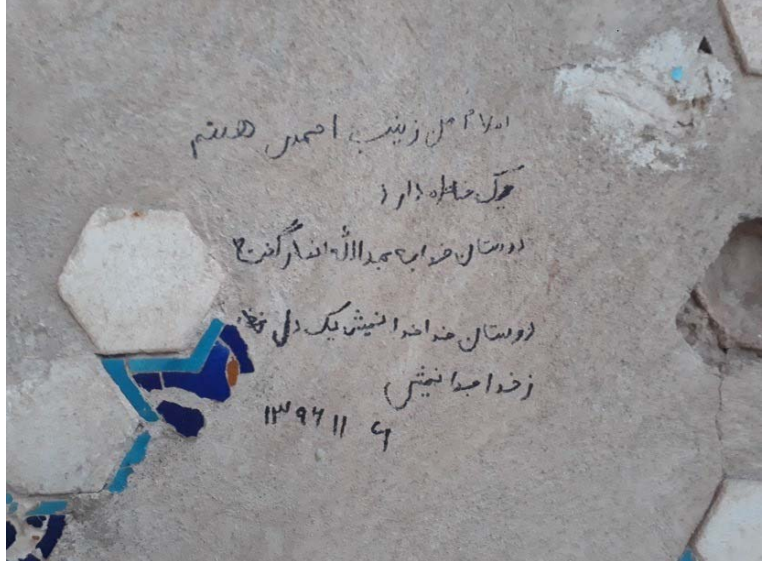 سلام من زینب احمدی هستم
یک خاطره دارد
دوستان خواجه عبدالله انصار گفت
دوستان خدا خدا نمیشن یک دلی
ز خدا جدا نمیشن
۱۳۹۶ ۱۱ ۶